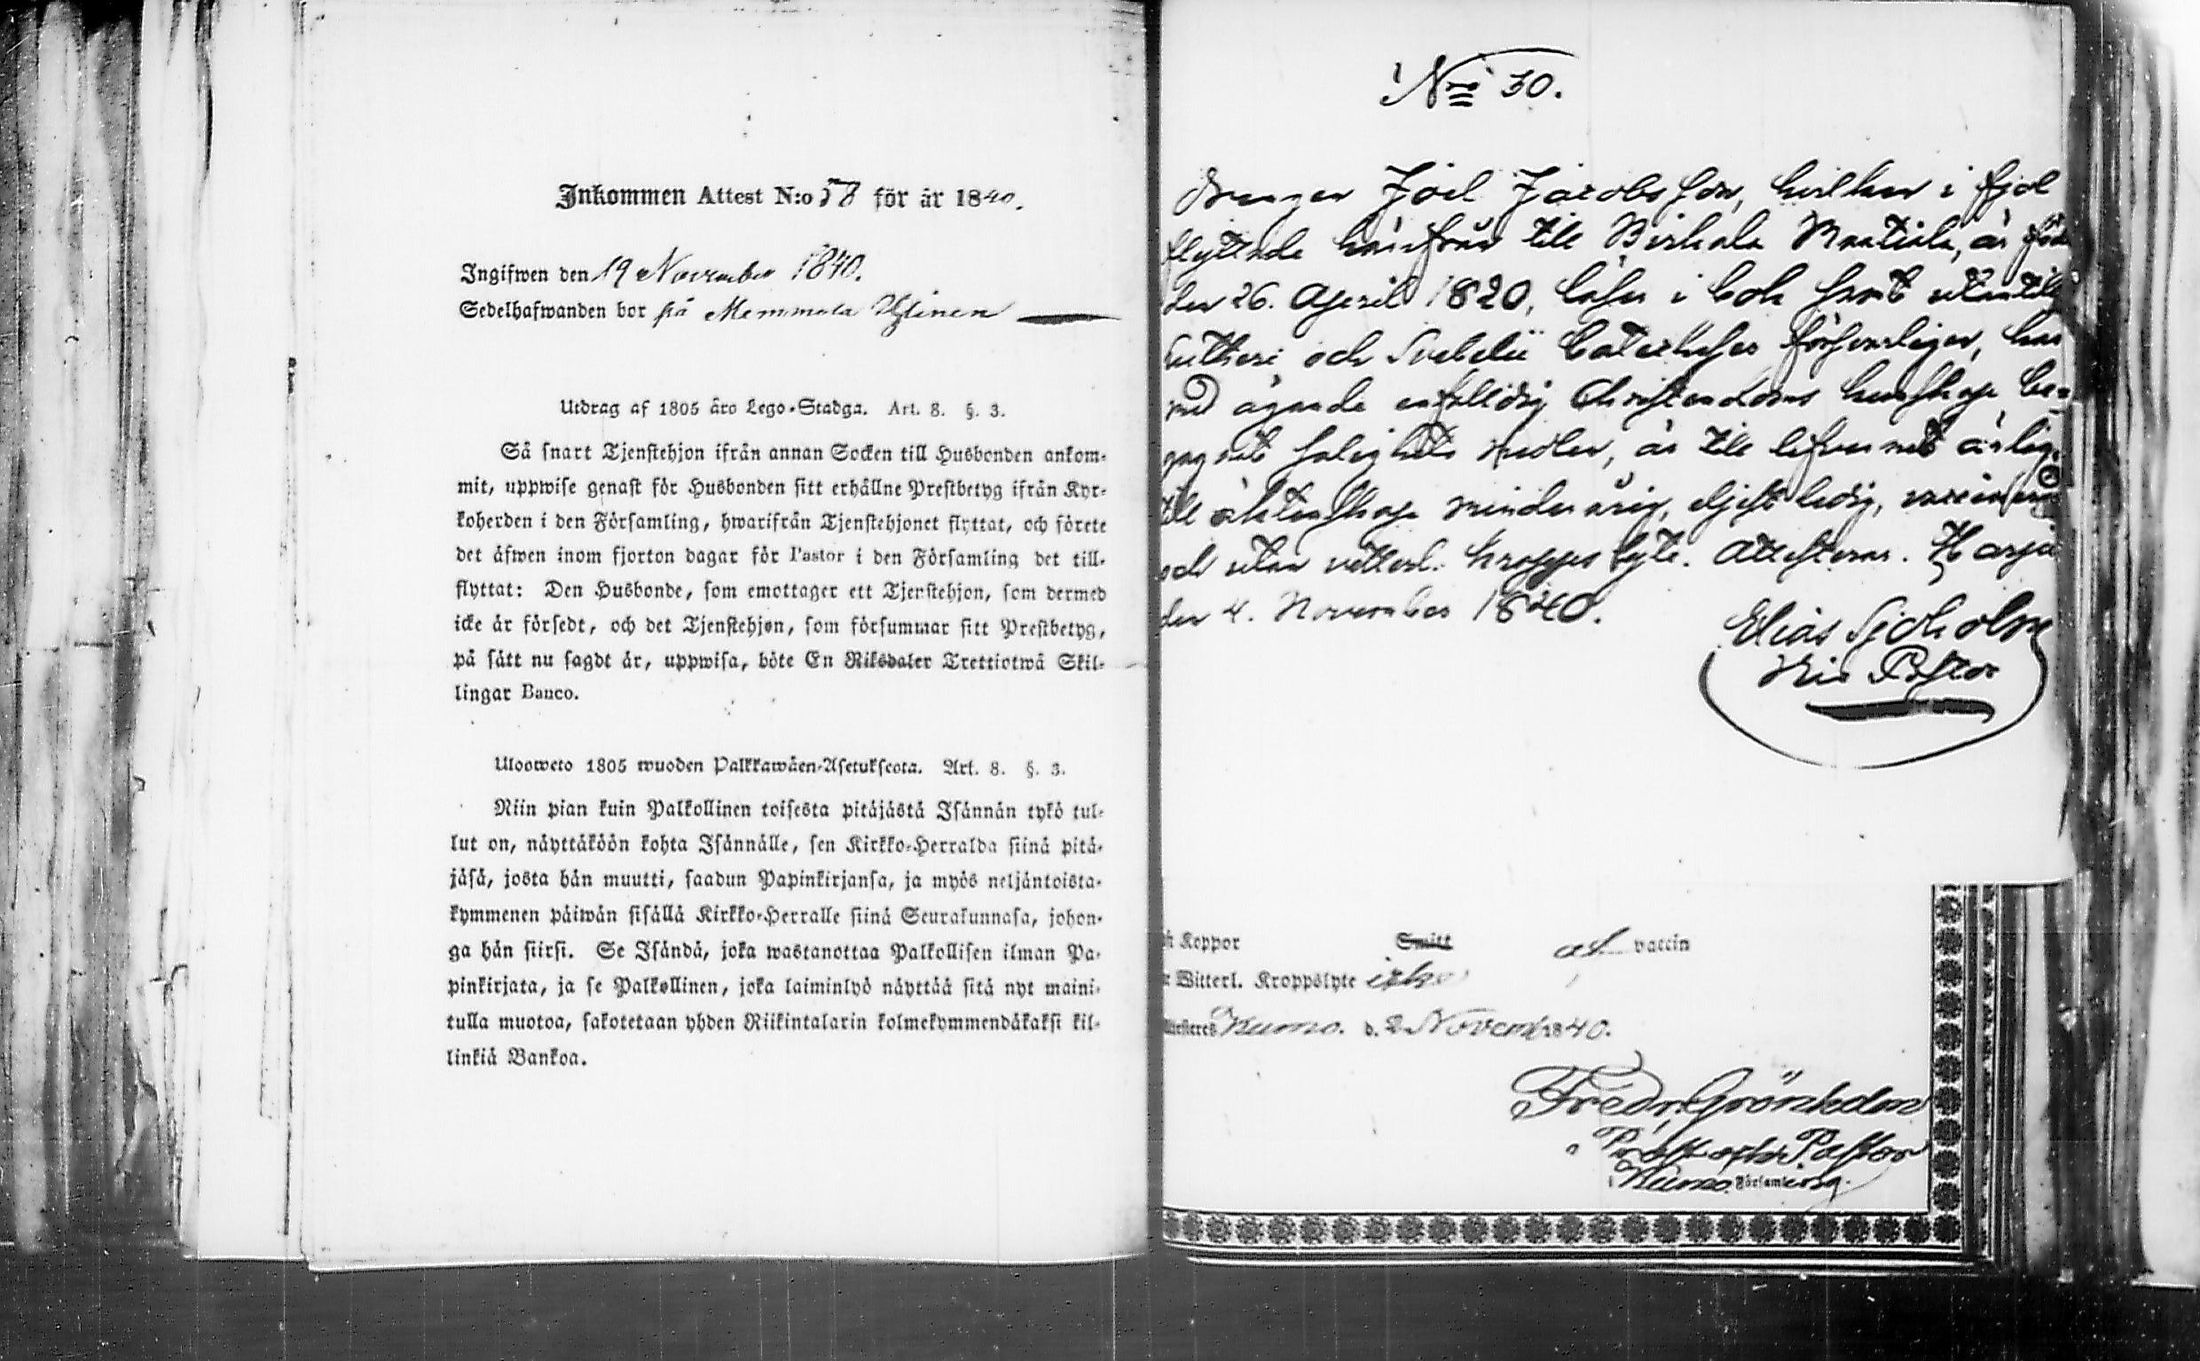 Inkommen Attest N:o 58 för år 1840.
Ingifwen den 19 November 1840.
Sedelhafwanden bor på Memmola
Utdrag af 1805 åro Lego-Stadga. Art. 8. §. 3.
Så snart Tjenstehjon ifrån annan Socken till Husbonden ankom-
mit, uppwise genast för Husbonden sitt erhållne Prestbetyg ifrån Kyr-
koherden i den Församling, hwarifrån Tjenstehjonet flyttat, och förete
det äfwen inom fjorton dagar för Pastor i den Församling det till-
flyttat: Den Husbonde, som emottager ett Tjenstehjon, som dermed
icke är försedt, och det Tjenstehjon, som försummar sitt Prestbetyg,
på sätt nu sagdt är, uppwisa, böte En Riksdaler Trettiotwå Skil-
lingar Banco.
Uloosweto 1805 wuoden Palkkawäen-Asetuksesta. Art. 8. §. 3.
Niin pian kuin Palkollinen toisesta pitäjästä Isännän tykö tul-
lut on, näyttäköön kohta Isännälle, sen Kirkko-Herralda siinä pitä-
jäsä, josta hän muutti, saadun Papinkirjansa, ja myös neljäntoista-
kymmenen päiwän sisällä Kirkko-Herralle siinä Seurakunnasa, johon-
ga hän siirsi. Se Isändä, joka wastanottaa Palkollisen ilman Pa-
pinkirjata, ja se Palkollinen, joka laiminlyö näyttää sitä nyt maini-
tulla muotoa, sakotetaan yhden Riikintalarin kolmekymmendäkaksi kil-
linkiä Bankoa.
Nro 30.
Drengen Joel Jacobsson, hvilken i fjol
flyttade härifrån till Birkala Maatiala, är född
den 26. April 1820, läser i bok samt utantill
Lutheri och Svebelii Catecheser försvarligen, har
med ägande enfaldig Christendoms kunskap be-
gagnat salighets medlen, är till lefvernet ärlig,
till äktenskap minderårig, eljest ledig, vaccinerad
och utan vetterl. kroppslyte. Attesteras. Harja
den 4. November 1840.
Elias Sjöholm
Vice Pastor
Koppor Smitt af vaccin
Witterl. Kroppslyte icke
Kumo. d. 2 Novemb 1840.
Fredr. Grönholm
Prost och Pastor
i Kumo Församling.